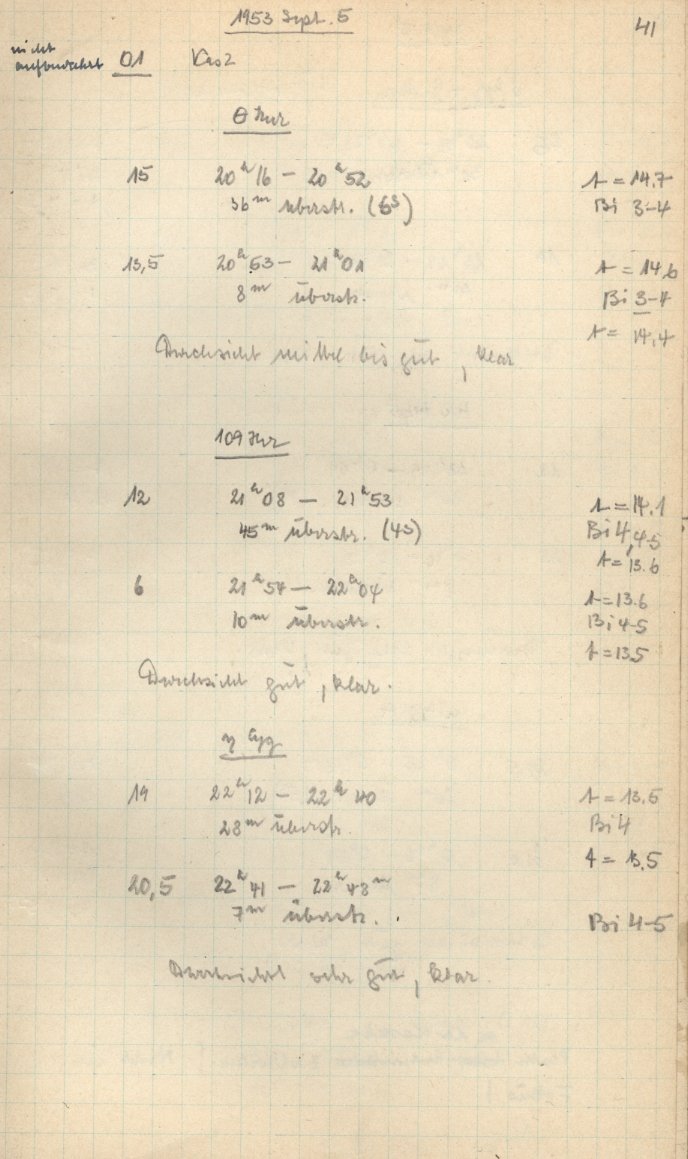 1953 Sept. 5
41
nicht
aufbewahrt 01 Kas2
θ Her
15 20ʰ16 – 20ʰ52 t = 14.7
36ᵐ überstr. (6ˢ) Bi 3-4
13,5 20ʰ53 – 21ʰ01 t = 14.6
8ᵐ überstr. Bi 3-4
t = 14,4
Durchsicht mittel bis gut, klar
109 Her
12 21ʰ08 – 21ʰ53 t = 14.1
45ᵐ überstr. (4ˢ) Bi 4, 4-5
t = 13.6
6 21ʰ54 – 22ʰ04 t = 13.6
10ᵐ überstr. Bi 4-5
t = 13.5
Durchsicht gut, klar.
η Cyg
19 22ʰ12 – 22ʰ40 t = 13.5
28ᵐ überstr. Bi 4
t = 13.5
20,5 22ʰ41 – 22ʰ48ᵐ
7ᵐ überstr. Bi 4-5
Durchsicht sehr gut, klar.